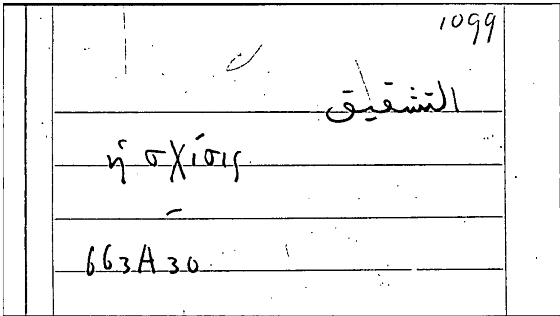 1099
التشقيق
ἡ σχίσις
663A30